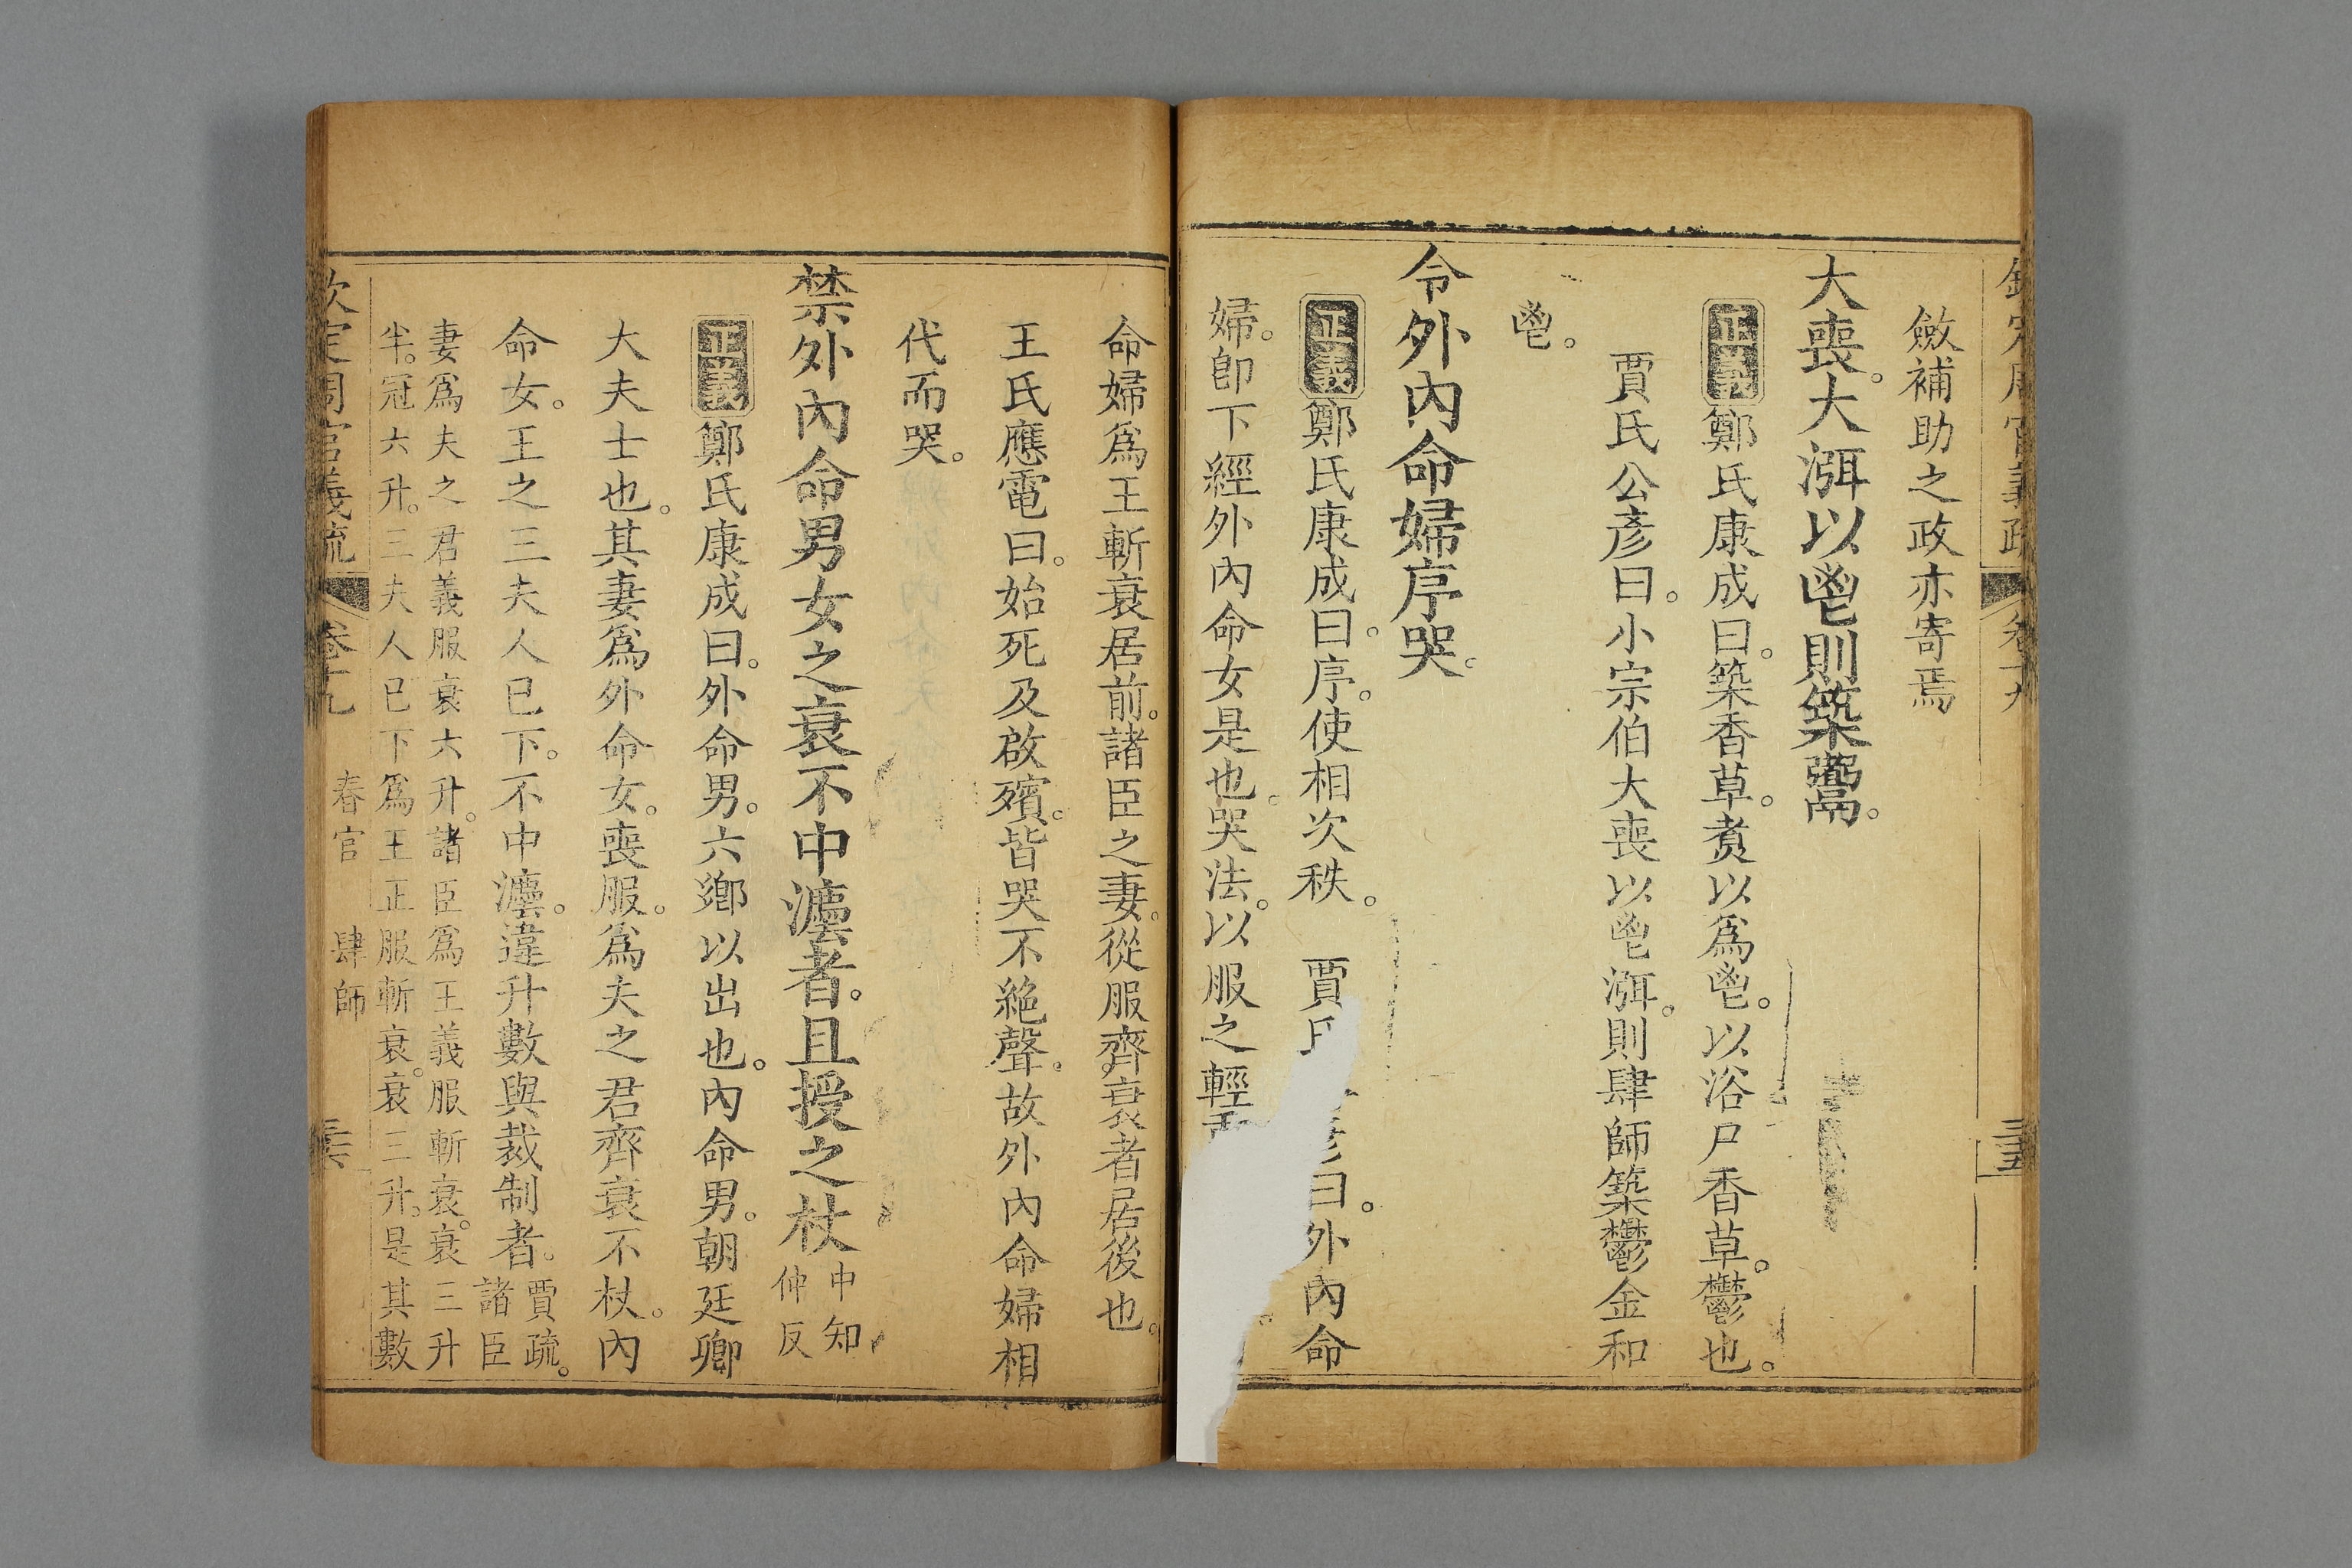 欽定周官義疏 卷十九 三五
斂補助之政亦寄焉
大喪。大渳以鬯則築鬻。
正義鄭氏康成曰。築香草。煑以爲鬯。以浴尸香草。鬱也。
賈氏公彥曰。小宗伯大喪以鬯渳。則肆師築鬱金和
鬯。
令外內命婦序哭。
正義鄭氏康成曰。序。使相次秩。 賈 曰。外內命
婦。卽下經外內命女是也。哭法。以服之輕
命婦爲王斬衰居前。諸臣之妻。從服齊衰者居後也。
王氏應電曰。始死及啟殯。皆哭不絕聲。故外內命婦相
代而哭。
禁外內命男女之衰不中灋者。且授之杖 中知
仲反
正義鄭氏康成曰。外命男。六鄉以出也。內命男。朝廷卿
大夫士也。其妻爲外命女。喪服。爲夫之君齊衰不杖。內
命女。王之三夫人已下。不中灋。違升數與裁制者。 賈疏。
諸臣
妻爲夫之君義服衰六升。諸臣爲王義服斬衰。衰三升
半。冠六升。三夫人已下爲王正服斬衰。衰三升。是其數
欽定周官義疏 卷十九 春官 肆師 三六